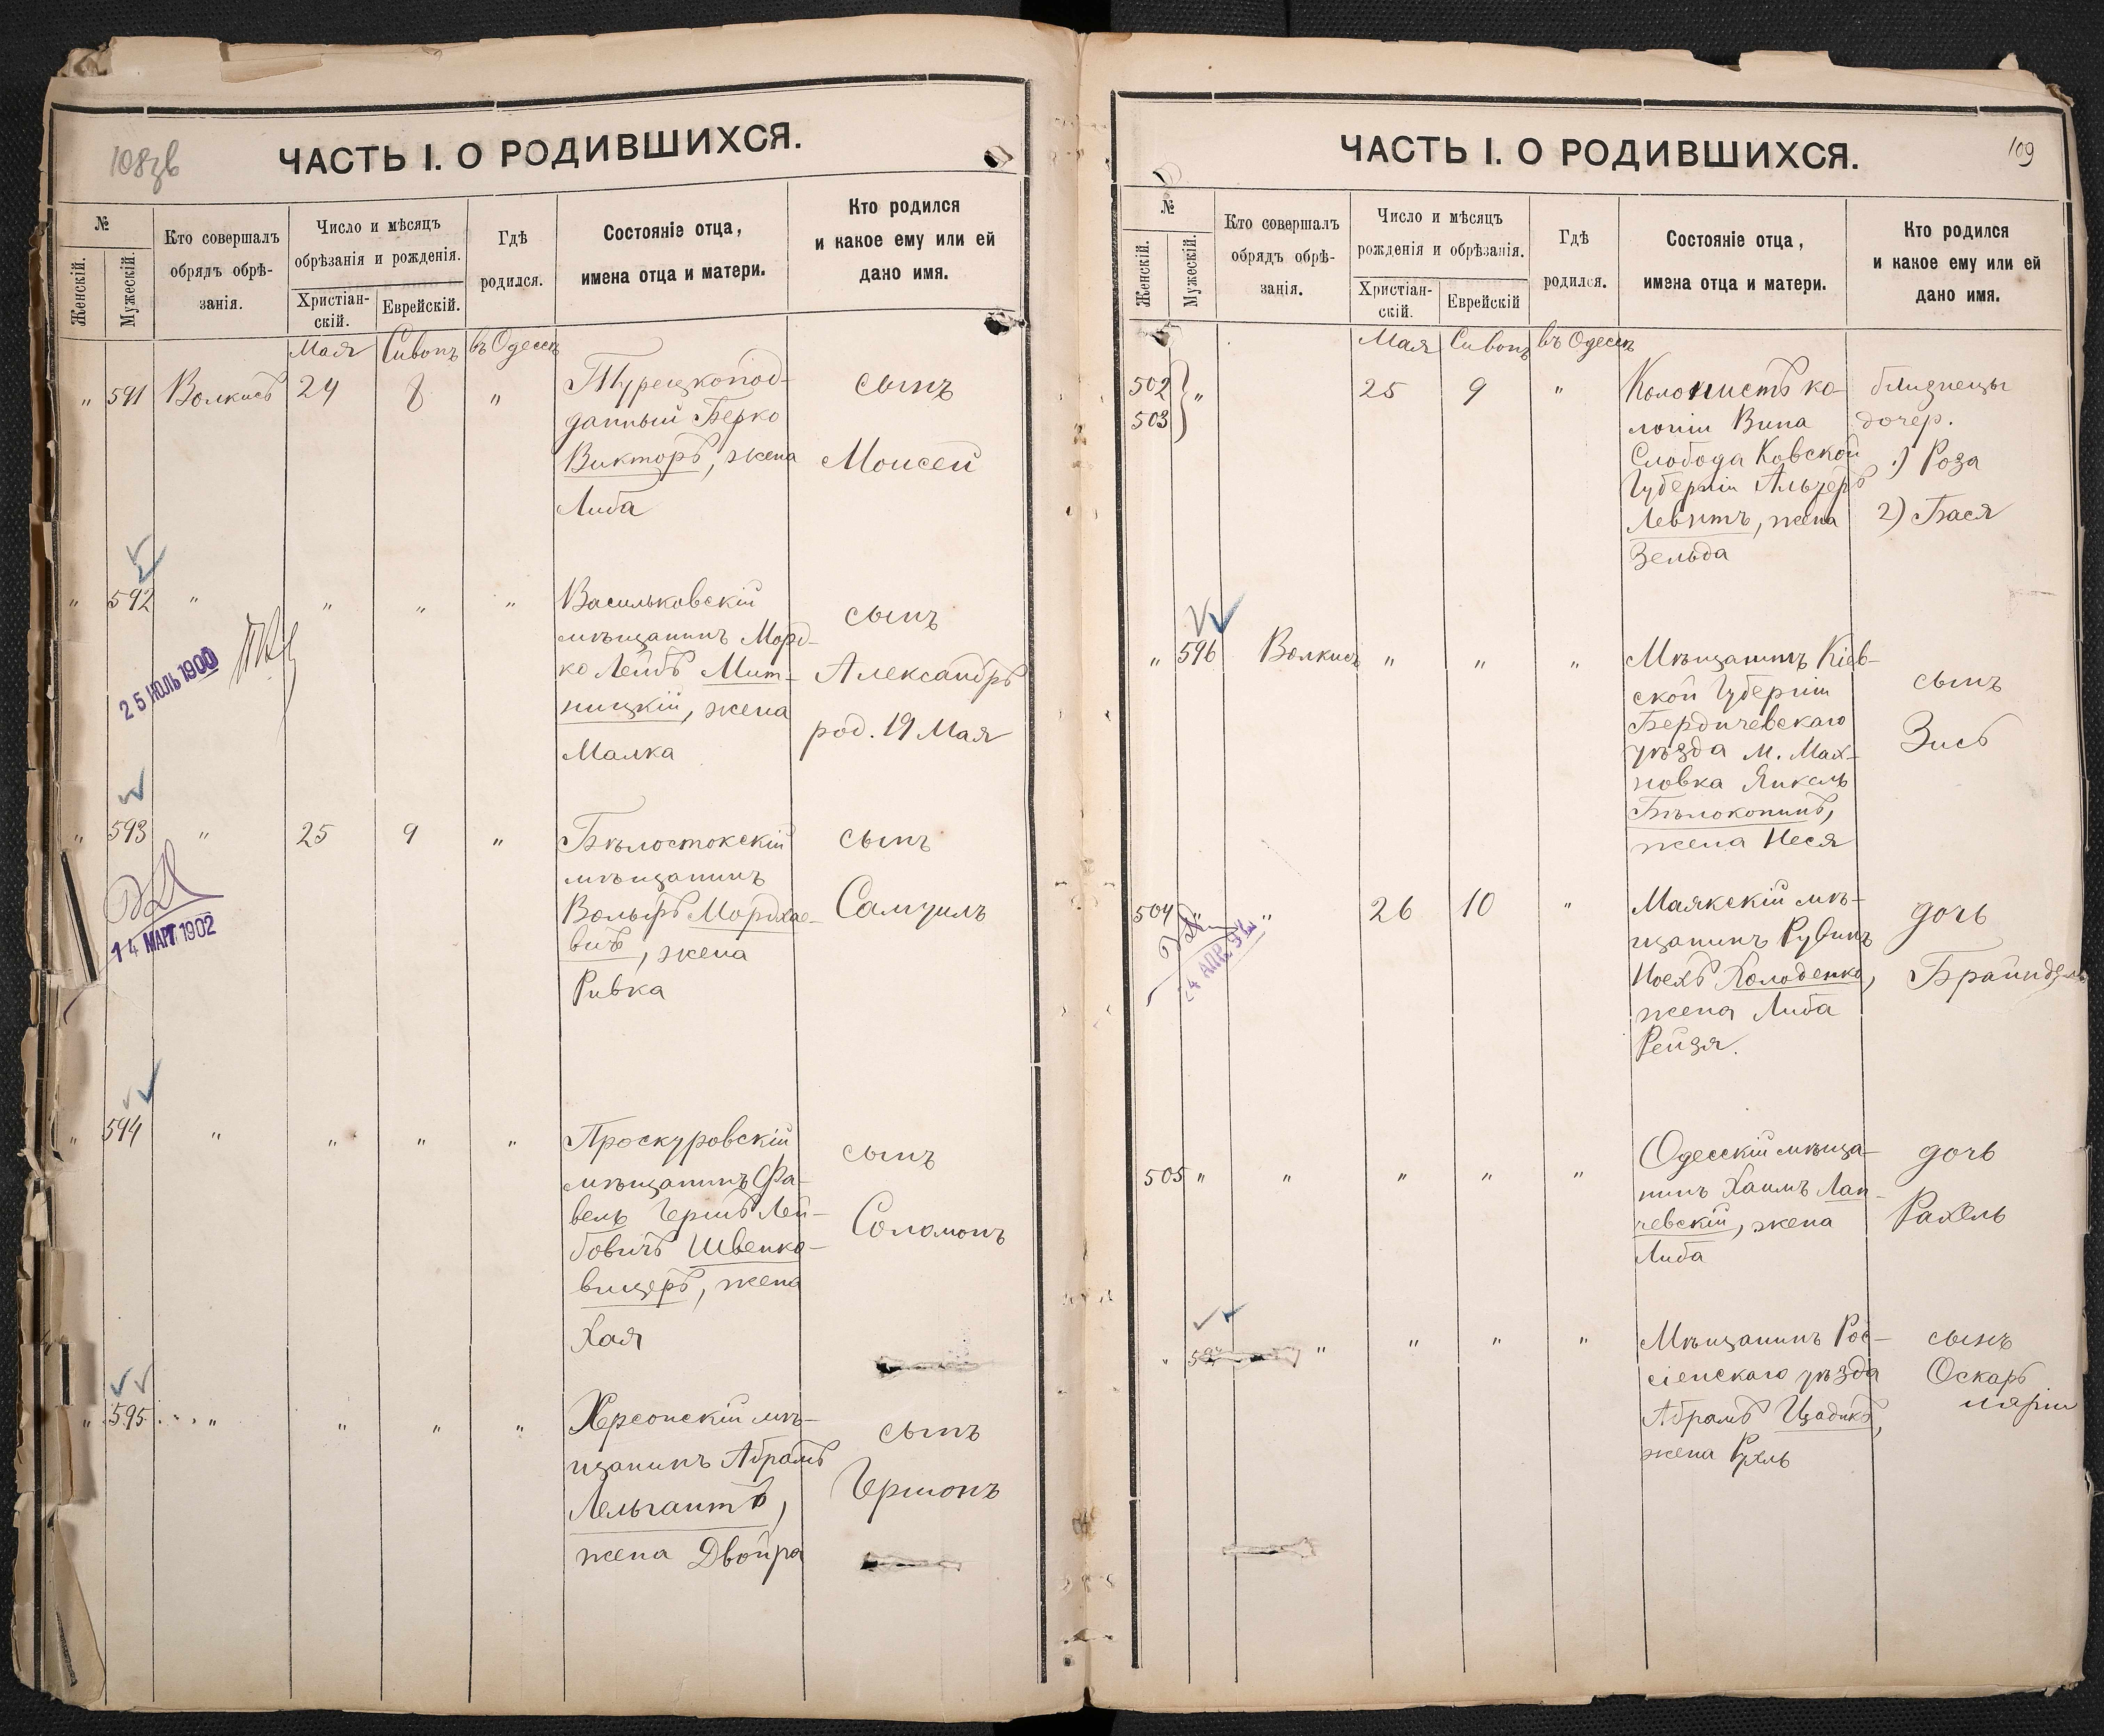 108зв
ЧАСТЬ I. О РОДИВШИХСЯ.
№
Женскій.
Мужескій.
Кто совершалъ
обрядъ обрѣ-
занія.
Число и мѣсяцъ
обрѣзанія и рожденія.
Христіан-
скій.
Еврейскій.
Гдѣ
родился.
Состояніе отца,
имена отца и матери.
Кто родился
и какое ему или ей
дано имя.
Мая Сивонъ въ Одессѣ
" 591 Волкисъ 24 8 " Турецкопод-
данный Берко
Викторъ, жена
Либа
сынъ
Моисей
" 592 " " " " Васильковскій
мѣщанинъ Морд-
ко Лейбъ Мит-
ницкій, жена
Малка
сынъ
Александръ
род. 19 Мая
25 ИЮЛЬ 1900
" 593 " 25 9 " Бѣлостокскій
мѣщанинъ
Вольфъ Мордхае-
вичъ, жена
Ривка
сынъ
Самуилъ
14 МАРТ 1902
" 594 " " " " Проскуровскій
мѣщанинъ Фа-
вель Гершъ Лей-
бовичъ Швенко-
вицеръ, жена
Хая
сынъ
Соломонъ
" 595 " " " " Херсонскій мѣ-
щанинъ Абрамъ
Лельгантъ,
жена Двойра
сынъ
Гершонъ
109
ЧАСТЬ I. О РОДИВШИХСЯ.
№
Женскій.
Мужескій.
Кто совершалъ
обрядъ обрѣ-
занія.
Число и мѣсяцъ
рожденія и обрѣзанія.
Христіан-
скій.
Еврейскій
Гдѣ
родился.
Состояніе отца,
имена отца и матери.
Кто родился
и какое ему или ей
дано имя.
Мая Сивонъ въ Одессѣ
502
503 " 25 9 " Колонистъ ко-
лоніи Вина
Слобода Ковской
Губерніи Альтеръ
Левитъ, жена
Зельда
близнецы
дочер.
1) Роза
2) Бася
" 596 Волкисъ " " " Мѣщанинъ Кіев-
ской Губерніи
Бердичевскаго
уѣзда м. Мах-
новка Янкель
Бѣлокопинъ,
жена Неся
сынъ
Зись
504 " " 26 10 " Маякскій мѣ-
щанинъ Рувинъ
Иосхъ Холоденко,
жена Либа
Рейзя.
дочь
Брайндель
24 АПР. 9
505 " " " " " Одесскій мѣща-
нинъ Хаимъ Лап-
чевскій, жена
Либа
дочь
Рахель
" 597 " " " " Мѣщанинъ Рос-
сіенскаго уѣзда
Абрамъ Цадикъ,
жена Рухль
сынъ
Оскаръ